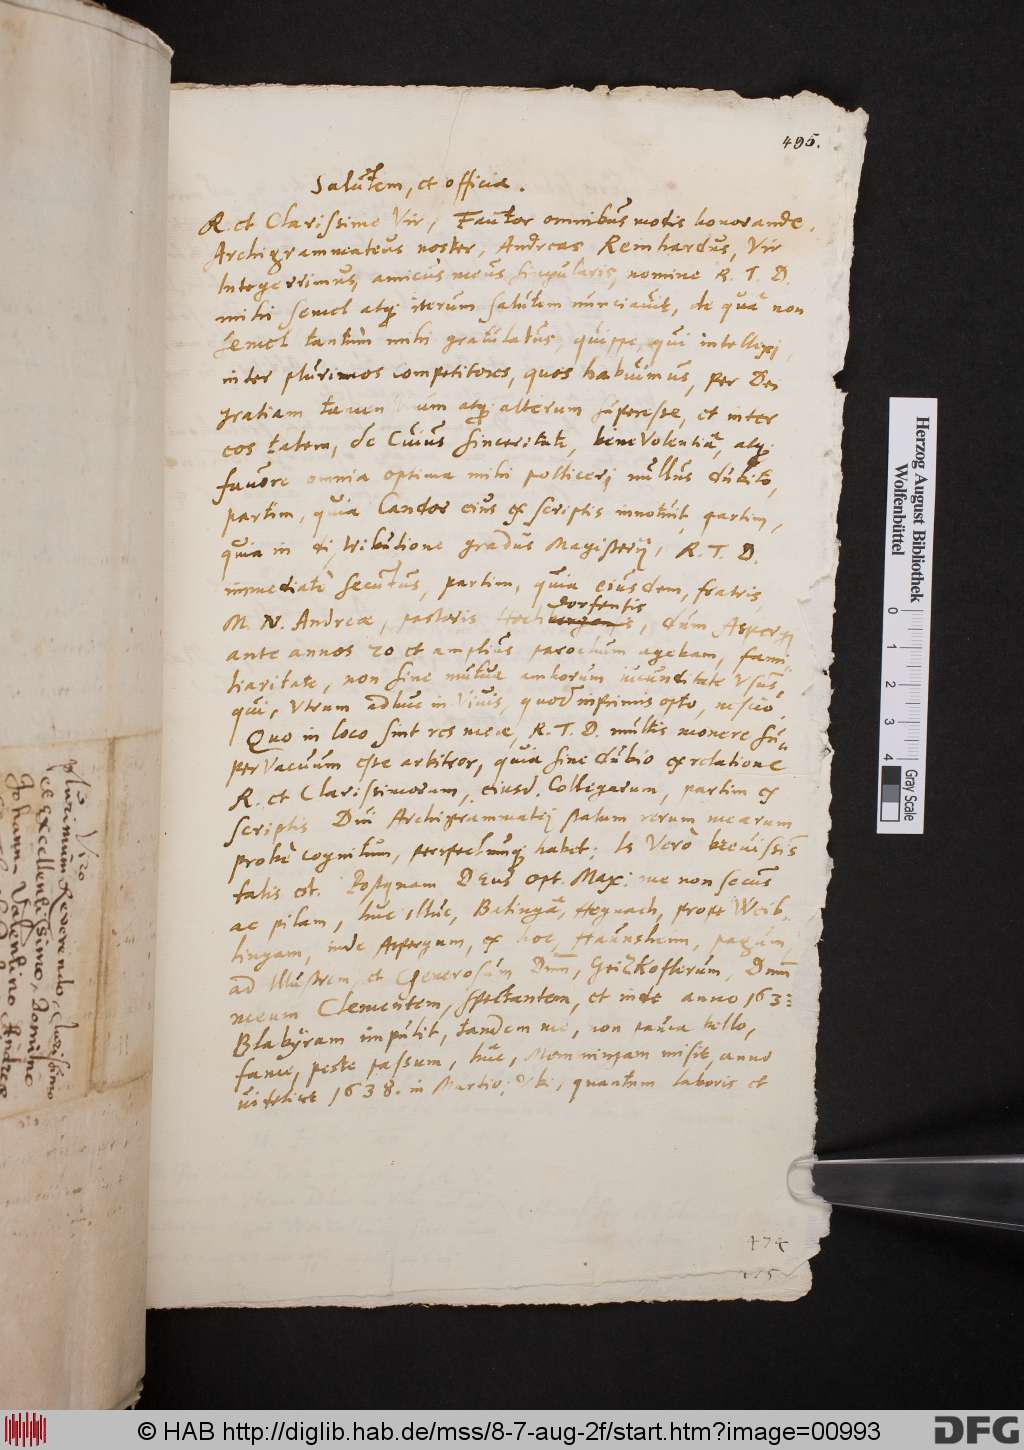 495.
Salutem, et officia.
R. et Clarissime Vir, Fautor omnibus modis honorande,
Archigrammateus noster, Andreas Reinhardus, Vir
Integerrimus, amicus meus singularis, nomine R. T. D.
mihi semel atq; iterum salutem nunciavit, de quâ non
semel tantùm mihi gratulatus, quippe, qui intellexi,
inter plurimos competitores, quos habuimus, per Dei
gratiam tamen unum atq; alterum superesse, et inter
eos talem, de cuius sinceritate, benevolentiâ, atq;
favore omnia optima mihi polliceri nullus dubito,
partim, quia Candor eius ex scriptis innotuit, partim,
quia in distributione gradus Magisterij, R. T. D.
immediatè secutus, partim, quia eiusdem, fratris,
M. N. Andreæ, pastoris Hochdorfensis, dum Aspergæ
ante annos 20 et amplius parochum agebam, fami-
liaritate, non sine mutua amborum iucunditate usus,
qui, utrum adhuc in vivis, quod inprimis opto, nescio.
Quo in loco sint res meæ, R. T. D. multis monere su-
pervacuum esse arbitror, quia sine dubio ex relatione
R. et Clarissimorum, eiusd. Collegarum, partim ex
scriptis Dni Archigrammatei statum rerum mearum
probè cognitum, perspectumq; habet; Is verò brevissis
talis est. Postquam DEus opt. Max. me non secus
ac pilam, huc illuc, Betingâ, Hegnach, prope Weib-
lingam, inde Aspergum, ex hoc, Haunsheim, pagum,
ad Illustrem, et Generosum, Dnn, Geizkoflerum, Dnm
meum Clementem, spectantem, et inde anno 163
Blabyram impulit, tandem me, non pauca bello,
fame, peste passum, huc, Memmingam misit, anno
videlicet 1638. in Martio; Ubi, quantum laboris et
474
Viro
plurimum Reverendo, Clarissimo
et excellentissimo, Domino
Johanni Valentino Andreæ
Herzog August Bibliothek
Wolfenbüttel
0 1 2 3 4
Gray Scale
© HAB http://diglib.hab.de/mss/8-7-aug-2f/start.htm?image=00993
DFG